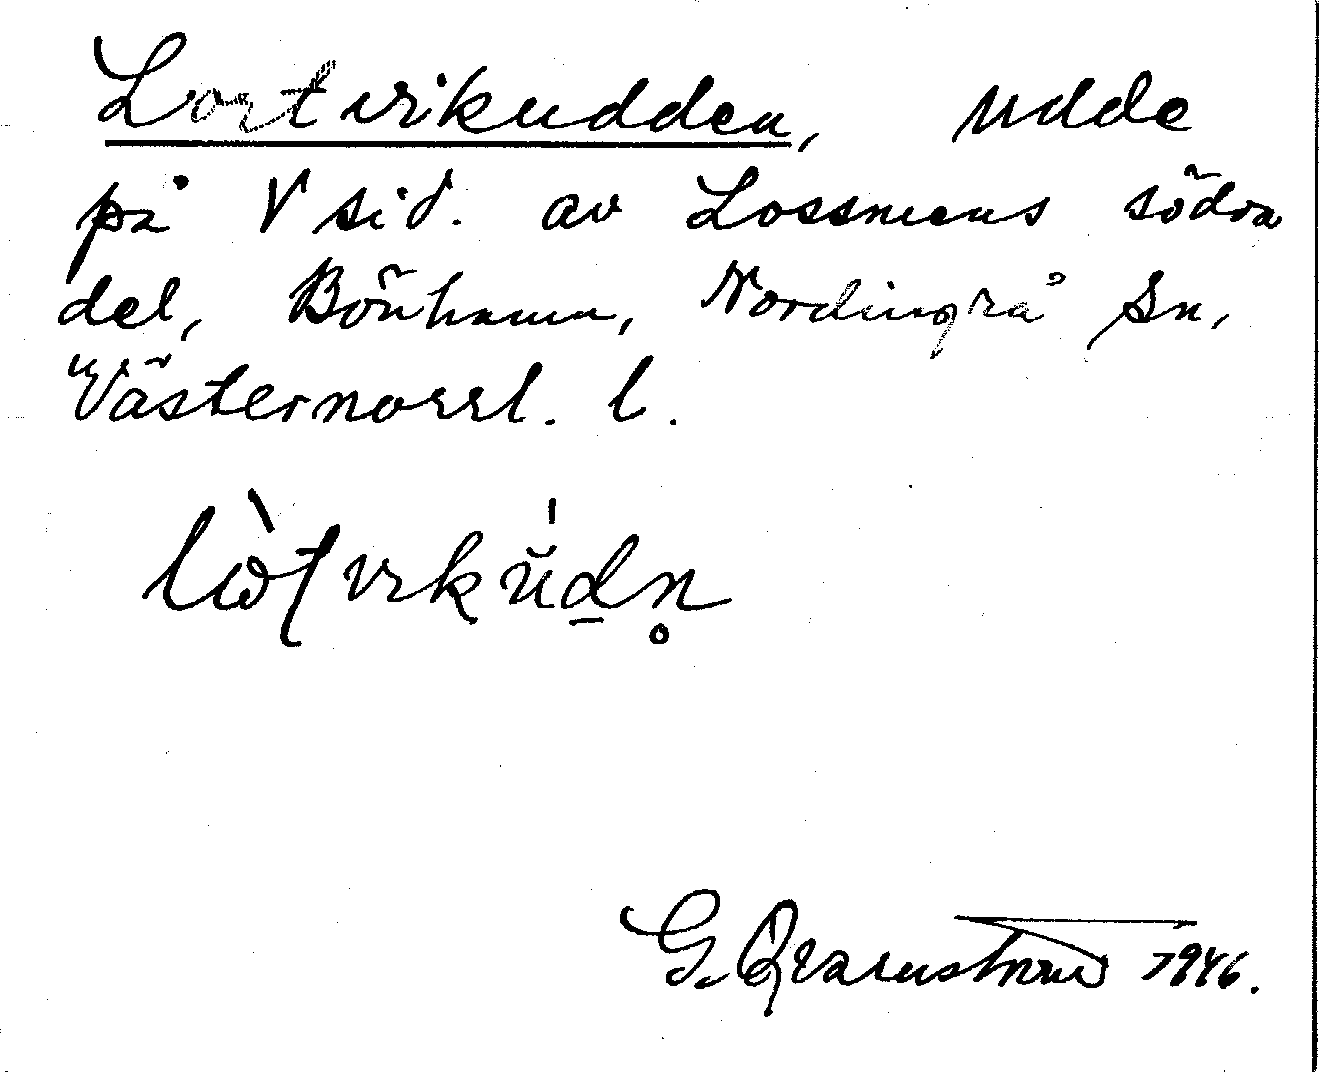 Lortvikudden, udde
på V sid. av Lossmens södra
del, Bönhamn, Nordingrå sn,
Västernorrl. l.
G. Qvarnström 1946.